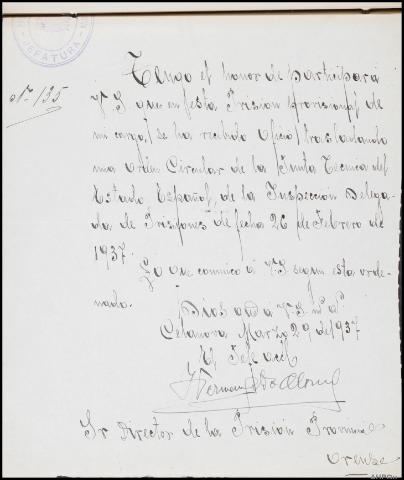 JEFATURA
Nº 135
Tengo el honor de participar a
V.S. que en esta Prision provisional de
mi cargo, se ha recibido Oficio, trasladando
una orden Circular de la Junta Tecnica del
Estado Español, de la Inspección Delega-
da de Prisiones de fecha 26 de Febrero de
1937.
Lo que comunico á V.S. segun esta orde-
nado.
Dios gde á V.S. ms as
Celanova Marzo 29, de 1937
El Jefe acctl
Sr Director de la Prisión Provincial
Orense